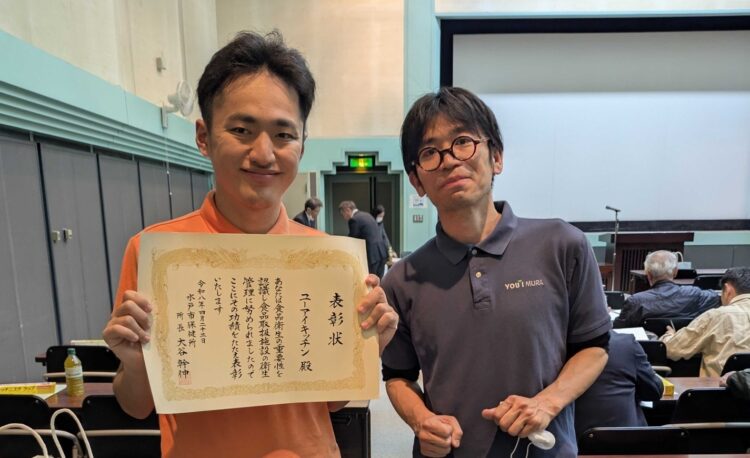 表彰状
ユーアイキッチン 殿
あなたは食品衛生の重要性を
認識し食品取扱施設の衛生
管理に努められましたので
ここにその功績をたたえ表彰
いたします
令和八年四月二十二日
水戸市保健所
所長 大谷幹伸
YOU I MURA